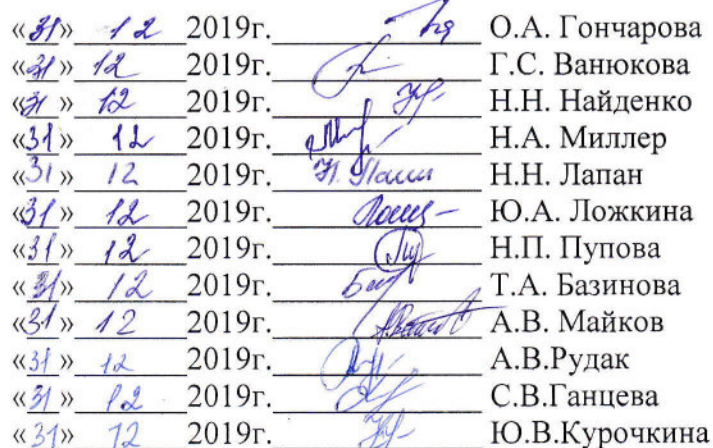 «31» 12 2019г. О.А. Гончарова
«31» 12 2019г. Г.С. Ванюкова
«31» 12 2019г. Н.Н. Найденко
«31» 12 2019г. Н.А. Миллер
«31» 12 2019г. Н.Н. Лапан
«31» 12 2019г. Ю.А. Ложкина
«31» 12 2019г. Н.П. Пупова
«31» 12 2019г. Т.А. Базинова
«31» 12 2019г. А.В. Майков
«31» 12 2019г. А.В.Рудак
«31» 12 2019г. С.В.Ганцева
«31» 12 2019г. Ю.В.Курочкина